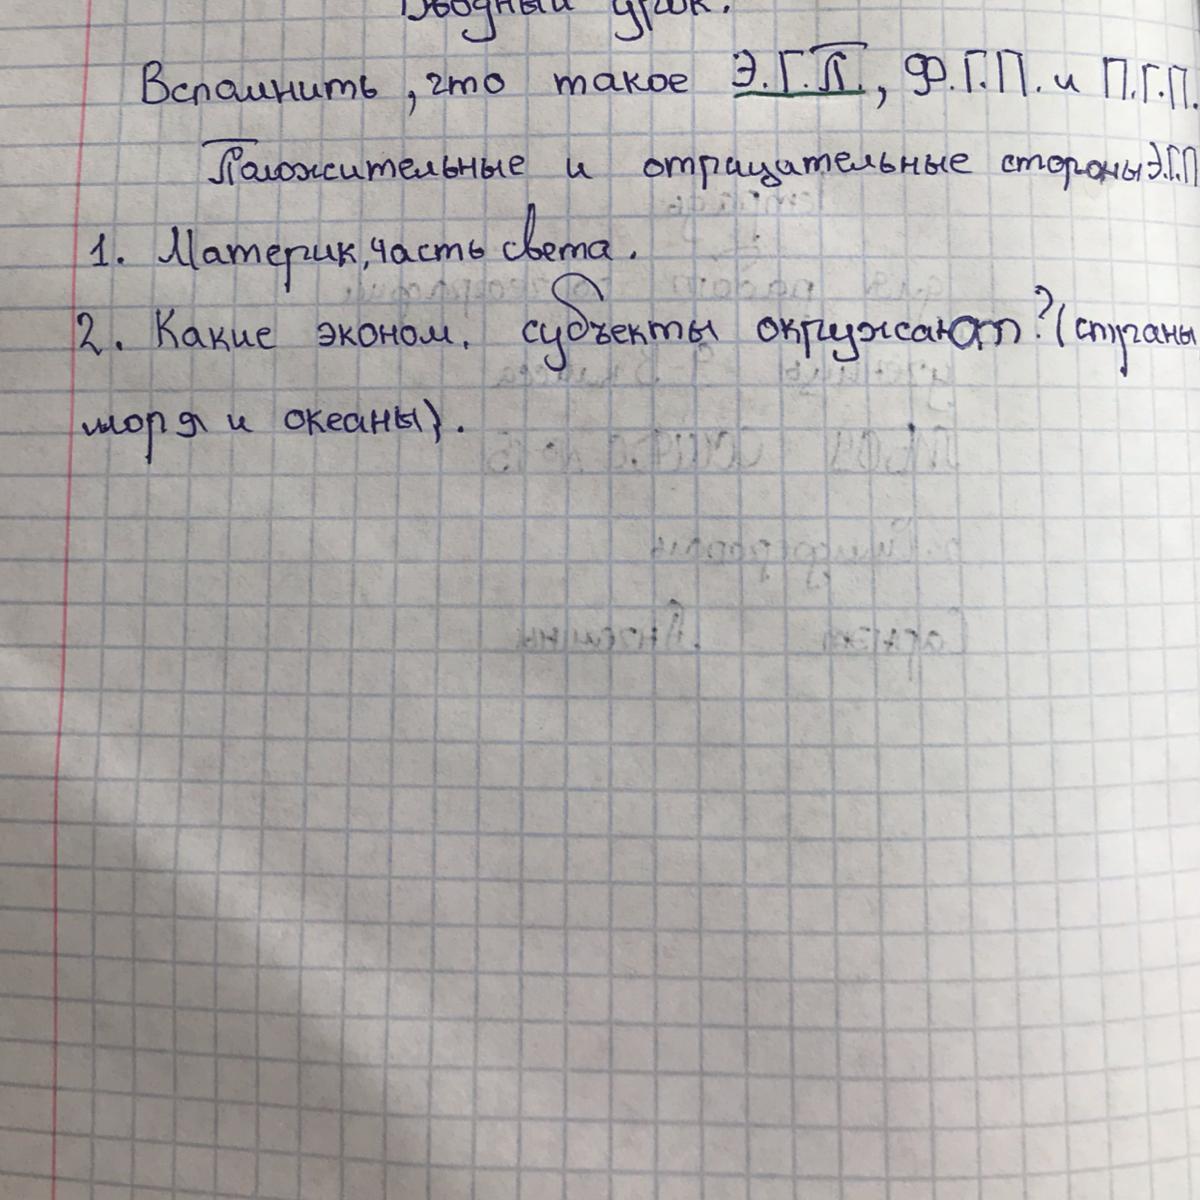 Вводный урок.
Вспомнить, что такое Э.Г.П., Ф.Г.П. и П.Г.П.
Положительные и отрицательные стороны Э.Г.П
1. Материк, часть света.
2. Какие эконом. субъекты окружают? (страны
моря и океаны).